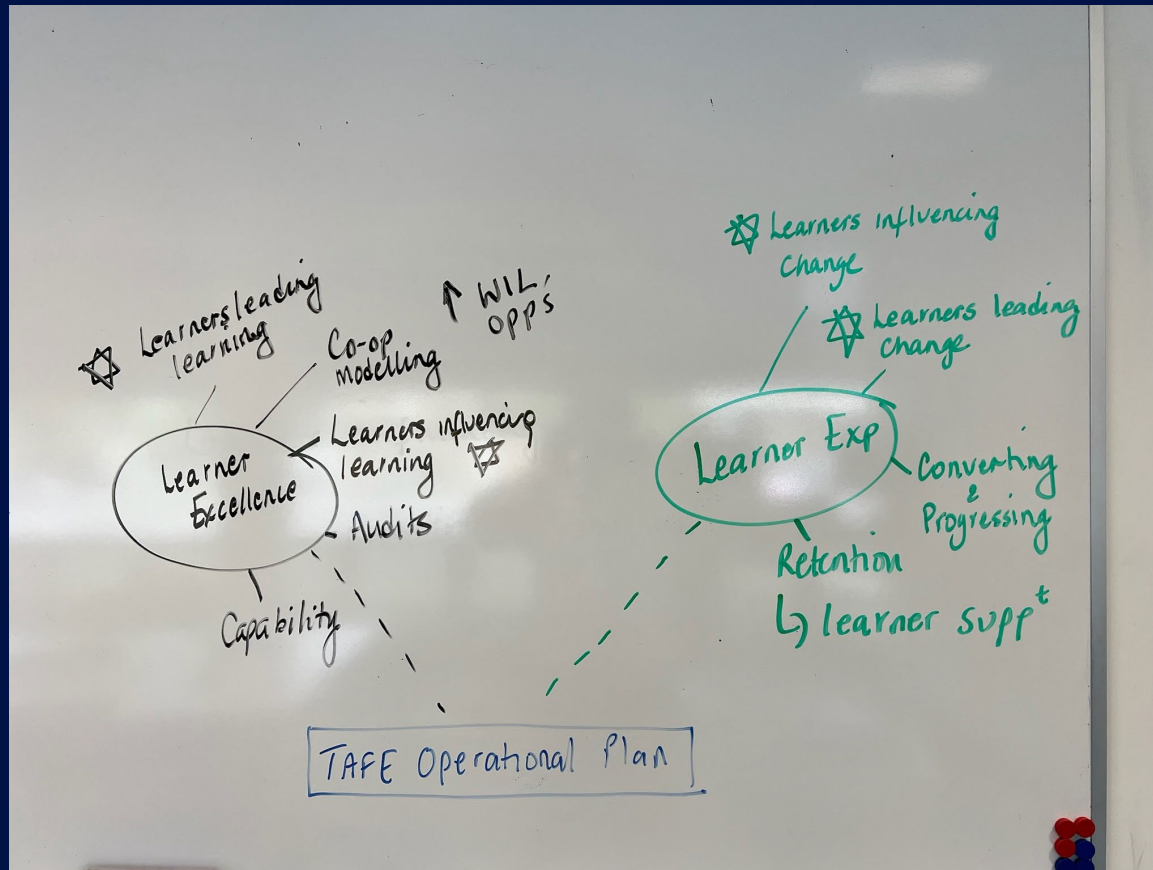 Learners leading
learning
Co-op
Modelling
↑ WIL
opps
Learners influencing
learning
Learner
Excellence
Audits
Capability
Learners influencing
change
Learners leading
change
Learner Exp
Converting
&
Progressing
Retention
↳ learner suppt
TAFE Operational Plan